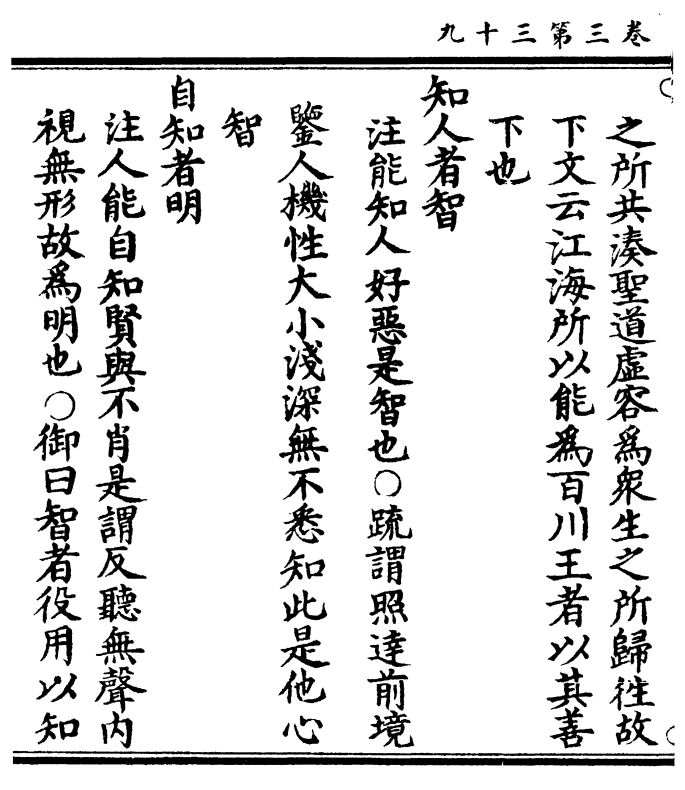 卷三第三十九
之所共湊聖道虛容爲衆生之所歸徃故
下文云江海所以能爲百川王者以其善
下也
知人者智
注能知人好惡是智也○䟽謂照達前境
鑒人機性大小淺深無不悉知此是他心
智
自知者明
注人能自知賢與不肖是謂反聽無聲内
視無形故爲明也○御曰智者役用以知